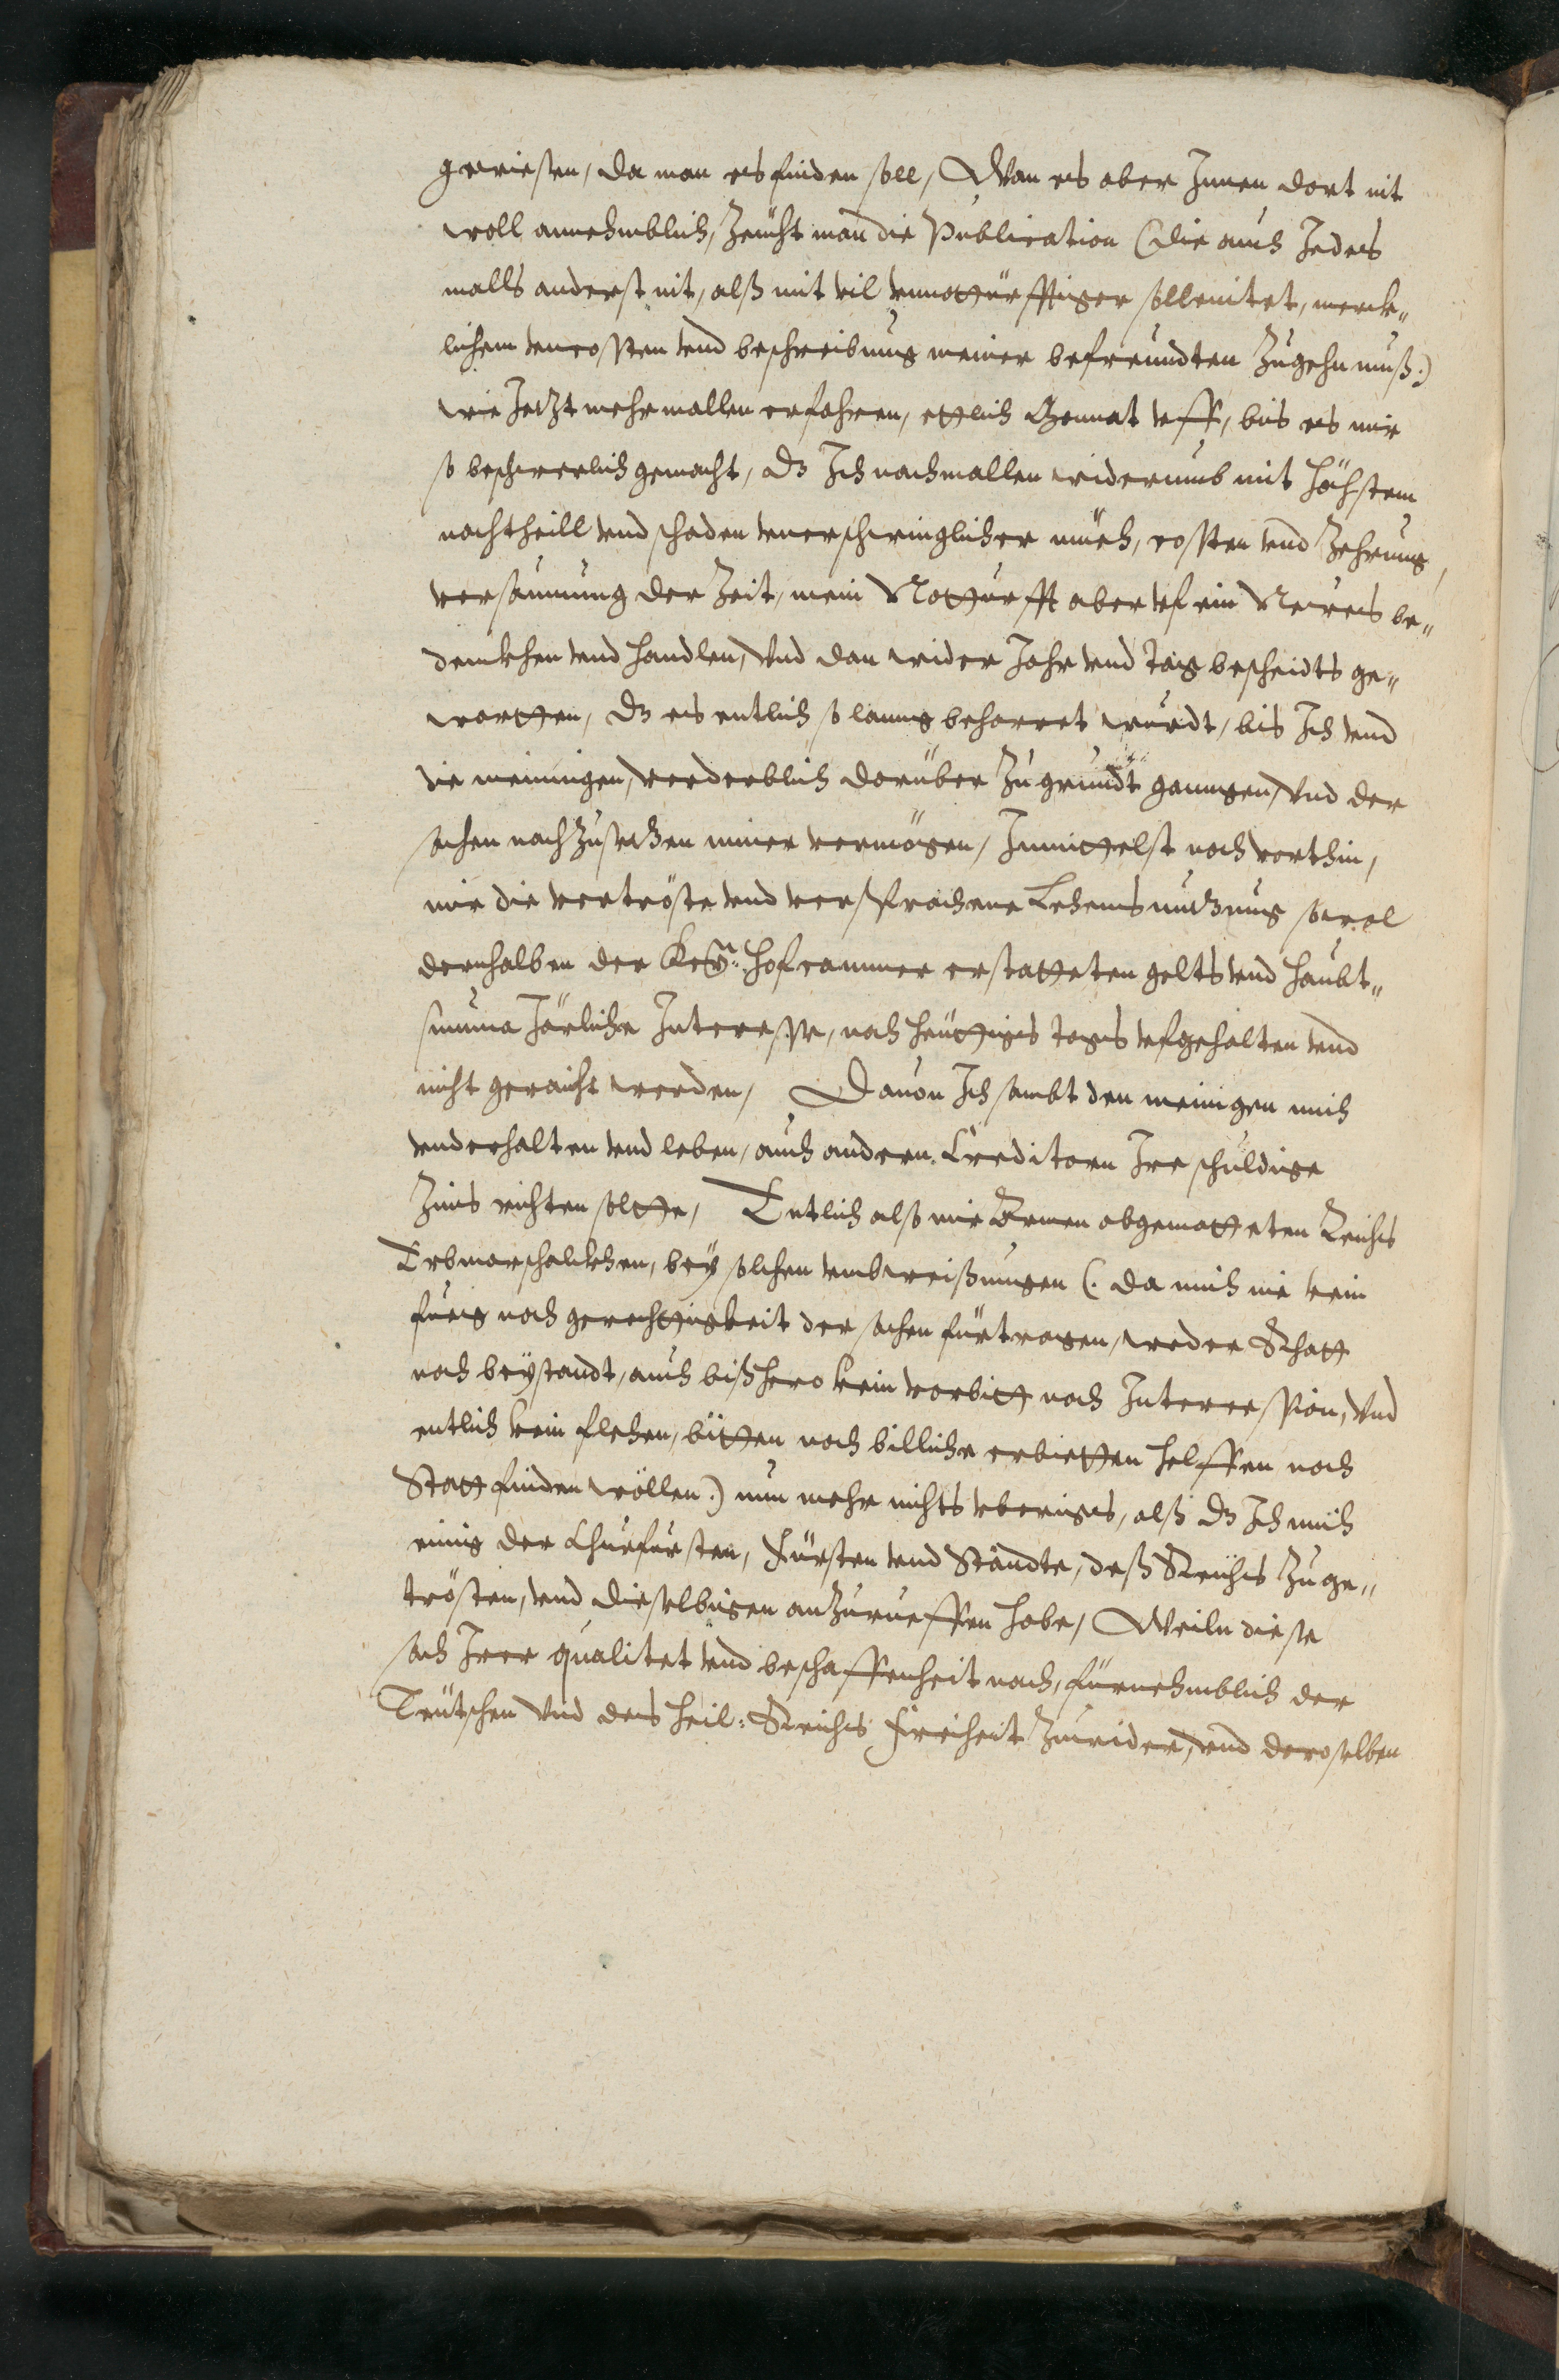 gewiesen, da man es finden soll, Wan es aber Innen dort nit
woll annehmblich, Zeücht man die Publication (die auch Jedes
malls anderst nit, alß mit vil vnnotturfftiger sollenitet, merck„
lichem vncossten vnd beschreibung meiner befreundten Zugehn muß.)
wie Jetzt mehrmallen erfahren, ettlich Monnat vff, bis es mir
so beschwerlich gemacht, dz Ich nachmallen widerumb mit höchstem
nachtheill vnd schaden vnerschwinglicher müeh, cossten vnd Zehrung,
versäumung der Zeit, mein Notturfft aber vf ein Neues be„
denckhen vnd handlen, vnd dan wider Jahr vnd tag bescheidts ge„
wartten, dz es entlich so lanng beharret wurdt, bis Ich vnd
die meinigen, verderblich darüber Zu grundt ganngen, vnd der
sachen nachzusetzen nimer vermögen, Inmittelst noch vorthin,
mir die vertröste vnd versprochene Lehensnutzung sowol
dernhalben der Key: hofcammer erstatteten gelts vnd haubt„
summa Järliche Interesse, noch heüttigs tages vfgehalten vnd
nicht geraicht werden, Dauon Ich sambt den meinigen mich
vnderhalten vnd leben, auch andern Creditorn Ire schuldige
Zins richten soltte, Entlich also mir Armen abgematteten Reichs
Erbmarschalckhen, bey solchen vmbweißungen (. da mich nie kein
fueg noch gerechttigkeit der sachen fürtragen, weder Schutz
noch beystandt, auch bißhero kein vorbitt noch Intercession, vnd
entlich kein flehen, bitten noch billiche erbietten helffen noch
Statt finden wöllen.) nun mehr nichts vberiges, alß dz Ich mich
einig der Churfürsten, Fürsten vnd Ständte, deß Reichs Zu ge„
trösten, vnd dieselbigen anzurueffen habe, Weiln diese
sach Irer qualitet vnd beschaffenheit nach, fürnehmblich der
Teütschen vnd des heil: Reichs freiheit Zuwider, vnd deroselben